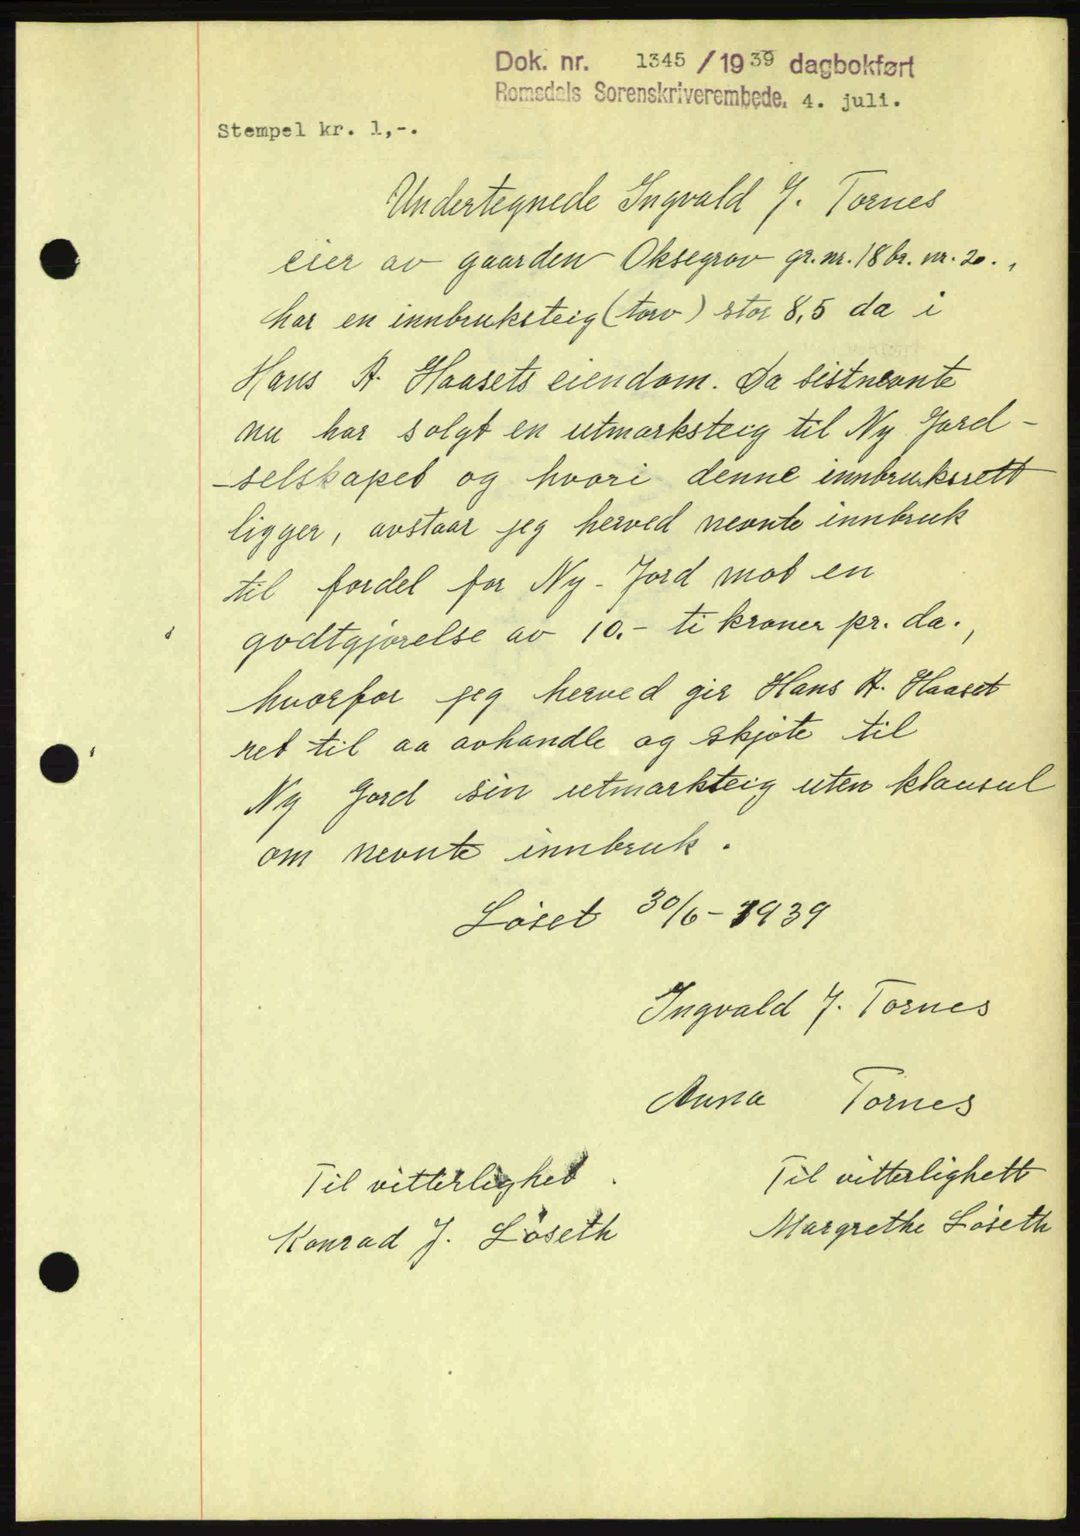 Dok. nr. 1345 / 1939 dagbokført
Romsdals Sorenskriverembede. 4. juli.
Stempel kr. 1,-.
Undertegnede Ingvald J. Tornes
eier av gaarden Oksegrav gr.nr. 18 br. nr. 20.,
har en innbruksteig (torv) stor 8,5 da i
Hans A. Haasets eiendom. Da sistnevnte
nu har solgt en utmarksteig til Ny Jord-
-selskapet og hvori denne innbruksrett
ligger, avstaar jeg herved nevnte innbruk
til fordel for Ny-Jord mot en
godtgjørelse av 10.- ti kroner pr. da.,
hvorfor jeg herved gir Hans A. Haaset
ret til aa avhandle og skjøte til
Ny Jord sin utmarkteig uten klausul
om nevnte innbruk.
Løset 30/6-1939
Ingvald J. Tornes
Anna Tornes
Til vitterlighet. Til vitterlighett
Konrad J. Løseth Margrethe Løseth